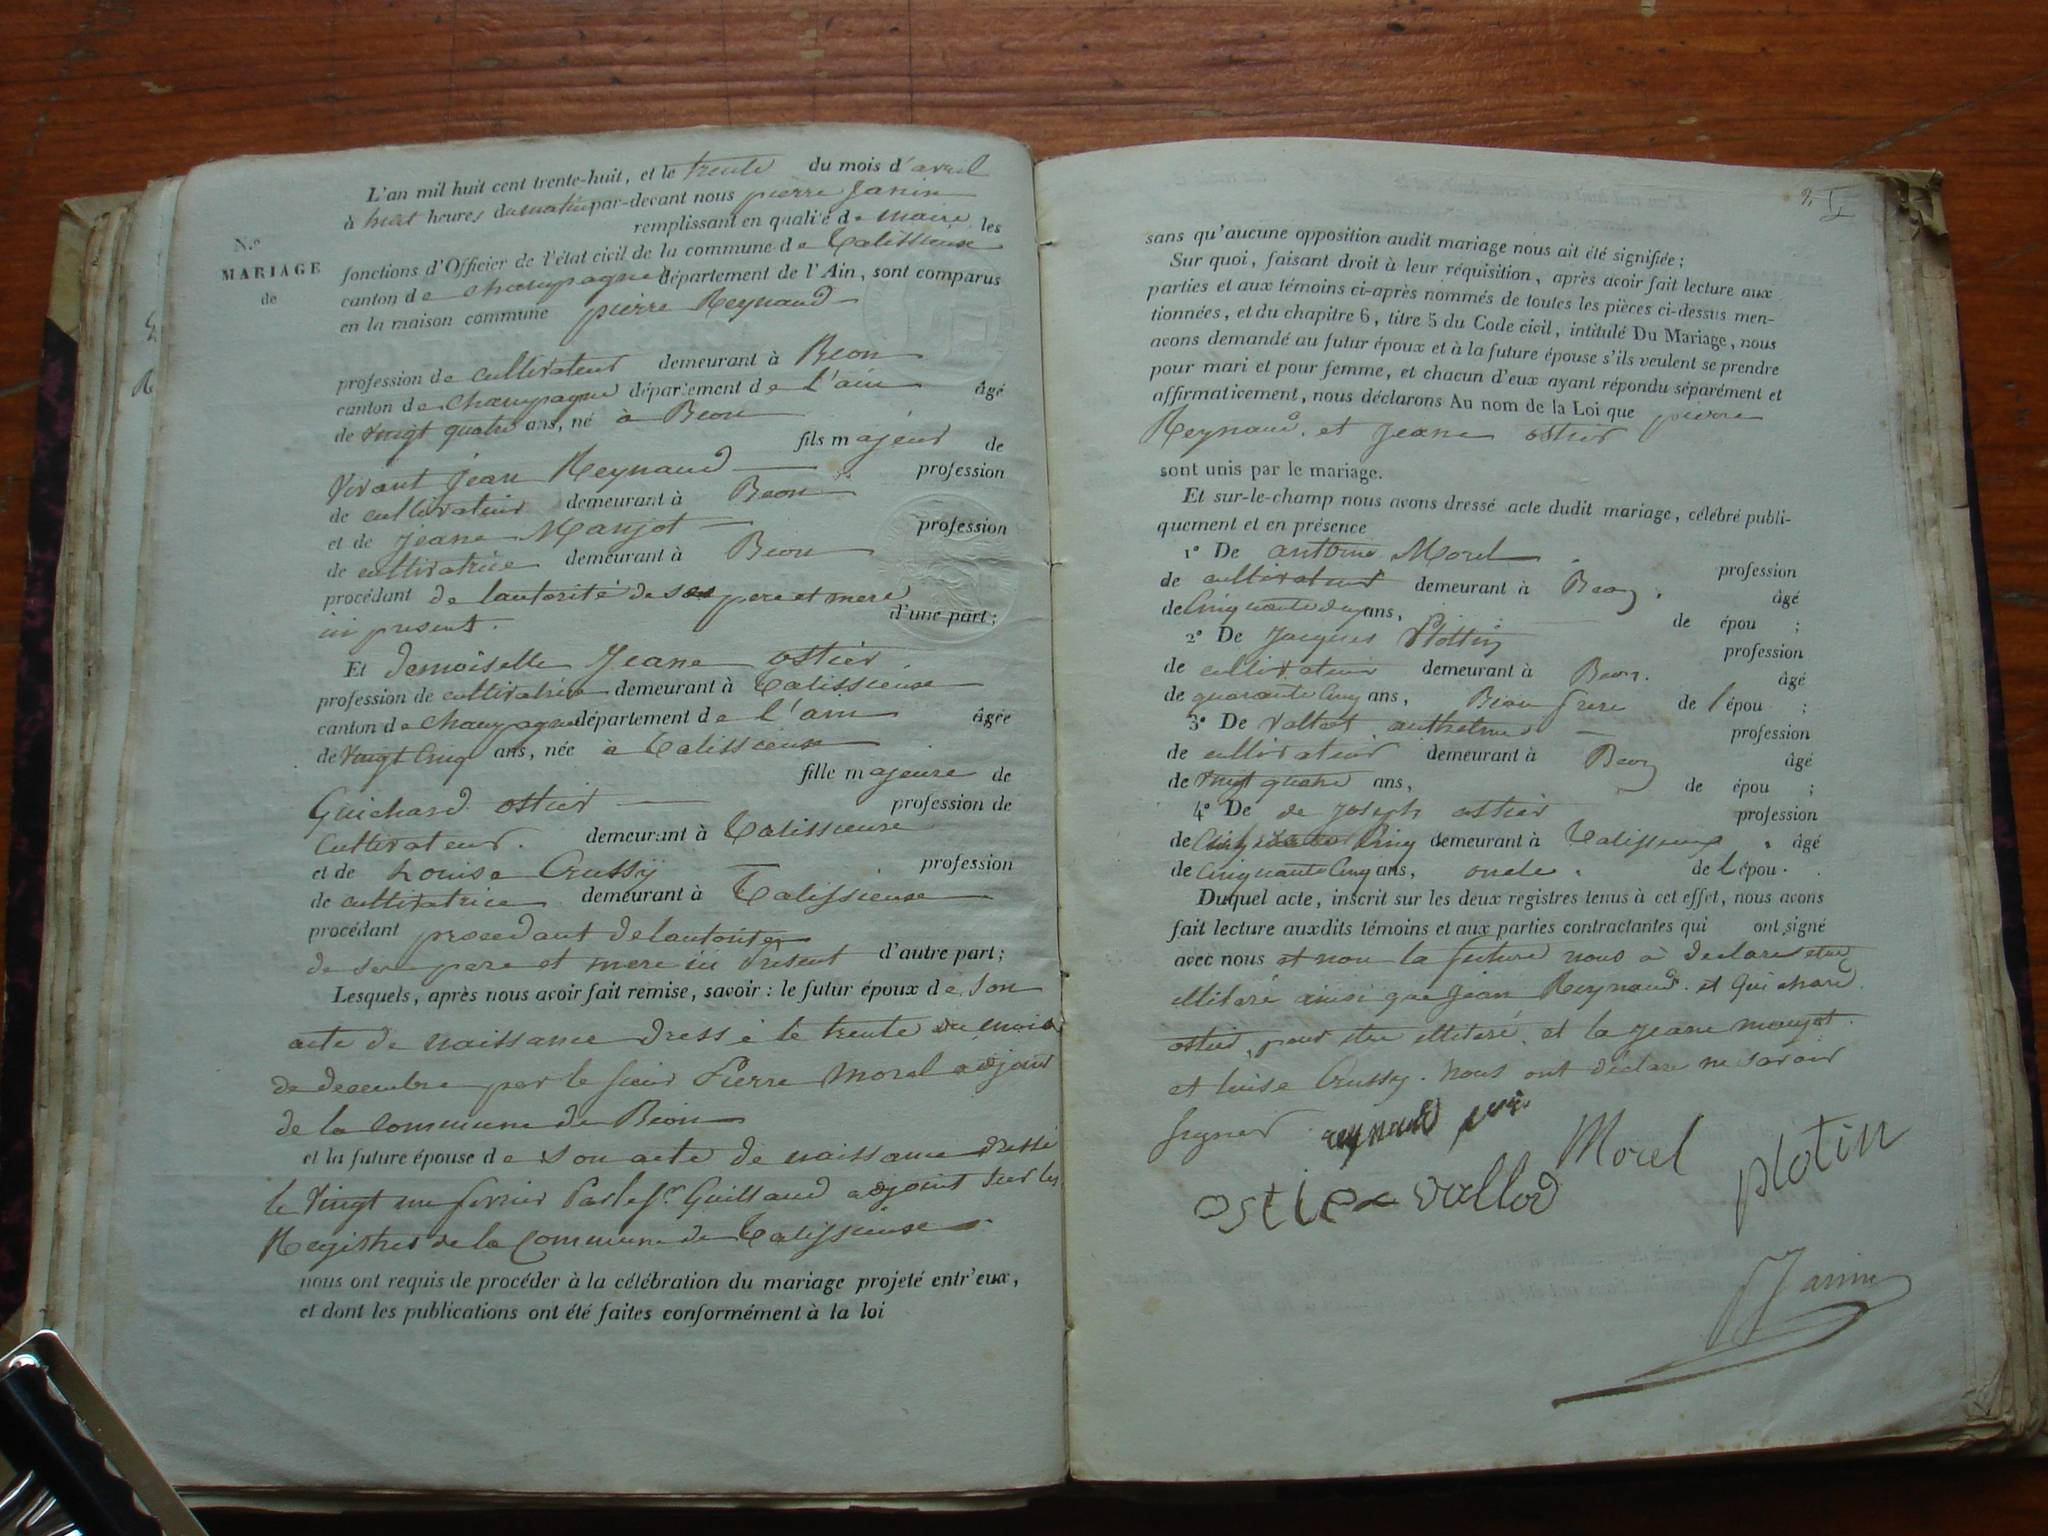 L'an mil huit cent trente-huit, et le trente du mois d'avril
à huit heures du matin par-devant nous pierre Janin
remplissant en qualité de maire les
fonctions d'Officier de l'état civil de la commune de Talissieuse
canton de champagne département de l'Ain, sont comparus
en la maison commune pierre Reynaud
N.º
MARIAGE
de
profession de cultivateur demeurant à Beon
canton de Champagne département de L'ain âgé
de vingt quatre ans, né à Beon
fils majeur de
vivant Jean Reynaud profession
de cultivateur demeurant à Beon
et de jeane Manjot profession
de cultivatrice demeurant à Beon
procédant de lautorité de ses pere et mere
ici present. d'une part;
Et demoiselle Jeane ostier
profession de cultivatrice demeurant à Talissieuse
canton de champagne département de L'ain âgée
de vingt cinq ans, née à Talissieuse
fille majeure de
Guichard ostier profession de
Cultivateur. demeurant à Talissieuse
et de Louise Crussy profession
de cultivatrice demeurant à Talissieuse
procédant procedant de lautorité
de son pere et mere ici present d'autre part;
Lesquels, après nous avoir fait remise, savoir : le futur époux de son
acte de naissance dressé le trente du mois
de decembre par le sieur Pierre Morel adjoint
de la commune de Beon
et la future épouse de son acte de naissance dressé
le vingt un fevrier Par le Sr Guillaud adjoint sur les
Registres de la Commune de Talissieuse
nous ont requis de procéder à la célébration du mariage projeté entr'eux,
et dont les publications ont été faites conformément à la loi
sans qu'aucune opposition audit mariage nous ait été signifiée;
Sur quoi, faisant droit à leur réquisition, après avoir fait lecture aux
parties et aux témoins ci-après nommés de toutes les pièces ci-dessus men-
tionnées, et du chapitre 6, titre 5 du Code civil, intitulé Du Mariage, nous
avons demandé au futur époux et à la future épouse s'ils veulent se prendre
pour mari et pour femme, et chacun d'eux ayant répondu séparément et
affirmativement, nous déclarons Au nom de la Loi que pierre
Reynaud. et Jeane ostier
sont unis par le mariage.
Et sur-le-champ nous avons dressé acte dudit mariage, célébré publi-
quement et en présence
1º De antoine Morel profession
de cultivateur demeurant à Beon âgé
de Cinquante deux ans, de épou ;
2º De Jacques Plottin profession
de cultivateur demeurant à Beon. âgé
de quarante Cinq ans, Beau frere de l'épou ;
3º De Vallod anthelme profession
de cultivateur demeurant à Beon âgé
de vingt quatre ans, de épou ;
4º De de Joseph ostier profession
de demeurant à Talissieux âgé
de Cinquante Cinq ans, oncle de L'épou.
Duquel acte, inscrit sur les deux registres tenus à cet effet, nous avons
fait lecture auxdits témoins et aux parties contractantes qui ont signé
avec nous et non la future nous à declare etre
illitaré ainsi que Jean Reynaud. et Guichard
ostier, pour etre illitaré, et la Jeane manjot.
et luise Crussy. nous ont déclare ne savoir
signer reynaud Morel plotin
ostier vallod
Janin